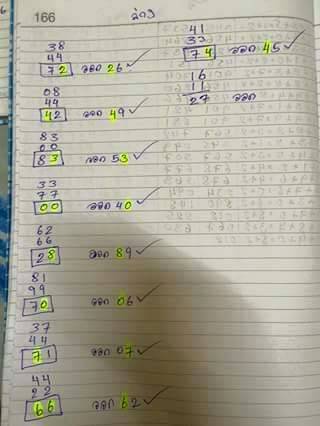 166
ล่าง
38
44
72 ออก 26
08
44
42 ออก 49
83
00
83 ออก 53
33
77
00 ออก 40
62
66
28 ออก 89
81
99
70 ออก 06
37
44
71 ออก 07
44
22
66 ออก 62
41
33
74 ออก 45
16
11
27 ออก